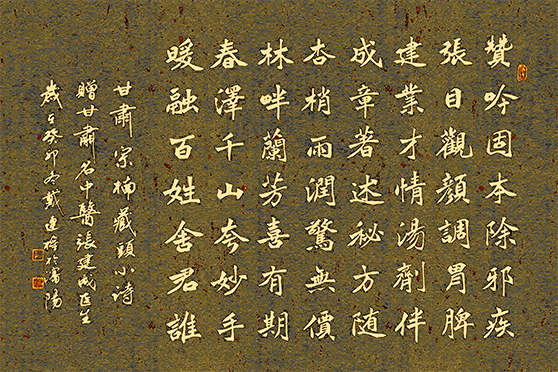 贊吟固本除邪疾
張日觀顏調胃脾
建業才情湯劑伴
成章著述秘方随
杏梢雨潤驚無價
林畔蘭芳喜有期
春澤千山夸妙手
暖融百姓舍君誰
甘肅宗楠藏頭小詩
贈甘肅名中醫張建成医生
歲在癸卯冬戴建於瀋陽